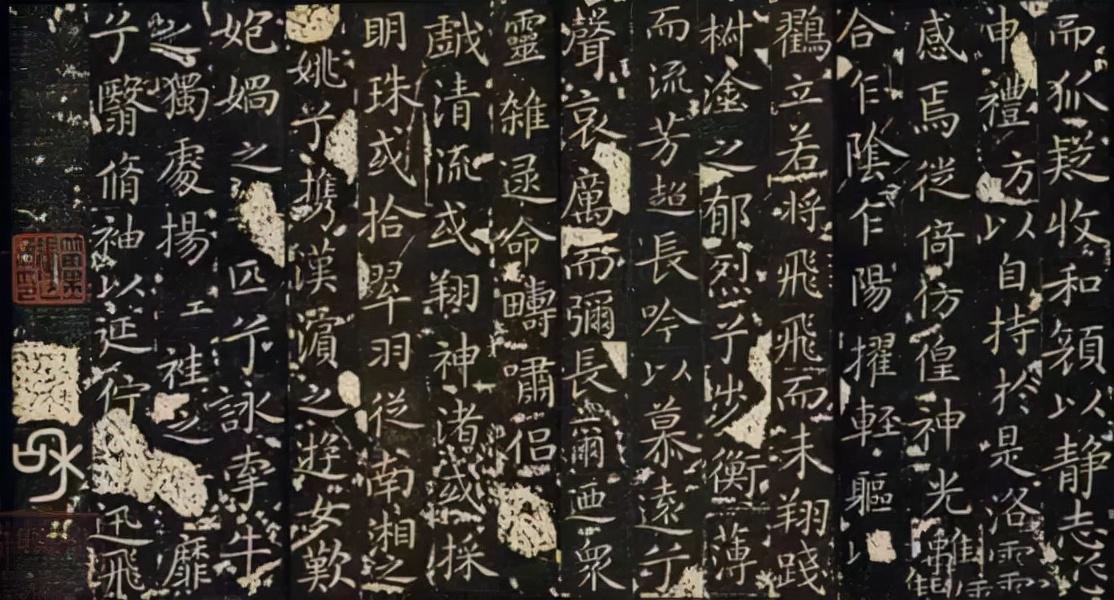 而狐疑收和顔以静志
申禮方以自持於是洛
感焉徙倚仿徨神光
合乍陰乍陽擢輕軀以
鸛立若将飛飛而未翔踐
椒塗之郁烈兮步衡薄
而流芳超長吟以慕遠兮
聲哀厲而彌長爾迺眾
靈雜遝命疇嘯侣
戯清流或翔神渚或採
明珠或拾翠羽從南湘之
姚兮攜漢濱之遊女歎
媧之匹兮詠牽牛
之獨處揚袿之靡
兮翳脩袖以延佇迅飛